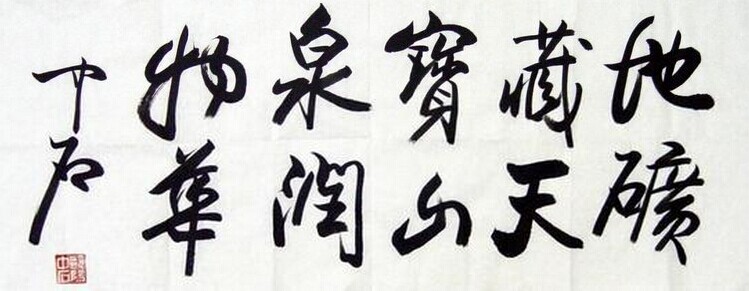 地礦
藏天
寶山
泉潤
物華
中石